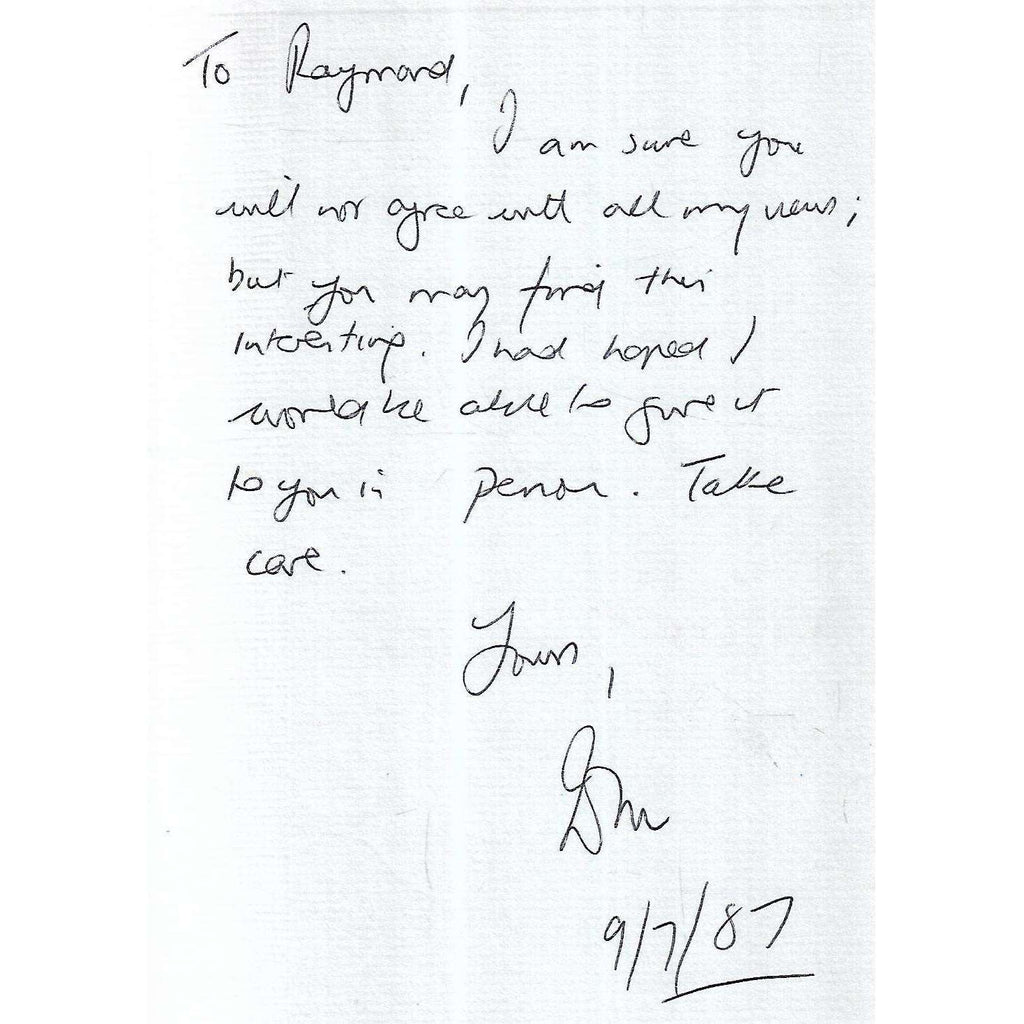 To Raymond,
I am sure you
will not agree with all my views;
but you may find this
interesting. I had hoped I
would be able to give it
to you in person. Take
care.
Yours,
9/7/87